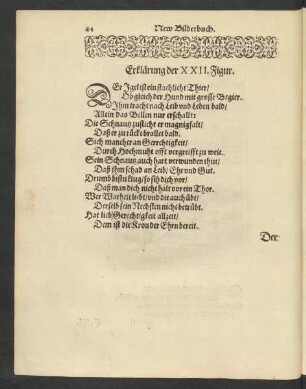 44 New Bilderbuch.
Erklärung der XXII. Figur.
DEr Igel ist ein stachlicht Thier/
Ob gleich der Hund mit grosse Begier
Ihm tracht nach Leib und Leben bald/
Allein das Bellen nur erschallt:
Die Schnautz zusticht er magnigfalt/
Daß er zu rücke brallet bald.
Sich mancher an Gerechtigkeit/
Durch Hochmuht offt vergreifft zu weit.
Sein Schnautz auch hart verwunden thut/
Daß ihm schad an Leib/ Ehr und Gut.
Drumb bistu klug/ so sih dich vor/
Daß man dich nicht halt vor ein Thor.
Wer Warheit liebt/ und die auch übt/
Derselb sein Nechsten nicht betrübt.
Hat lieb Gerechtigkeit allzeit/
Dem ist die Kron der Ehrn bereit.
Der